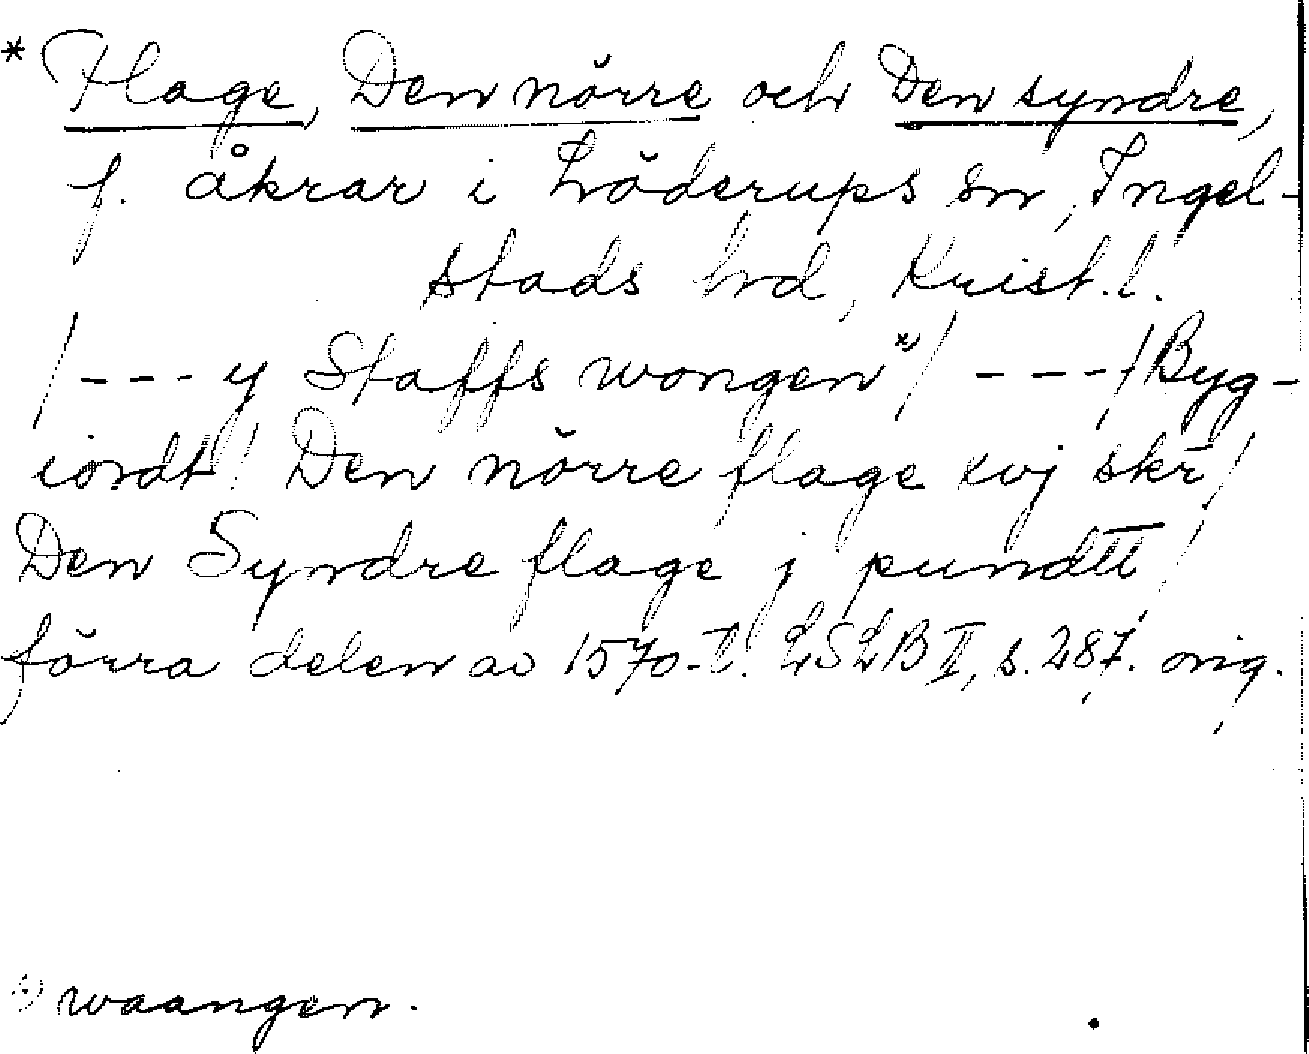 * Flage, Den nörre och Den syndre,
f. åkrar i Löderups sn, Ingel-
stads hd, Krist. l.
/--- y Staffs wongen x) / ---/ Byg-
iordt! Den nörre flage xvj skr/
Den Syndre flage j pundtt /
förra delen av 1570-t. LSLB II, s. 287. orig.
x) waangen.